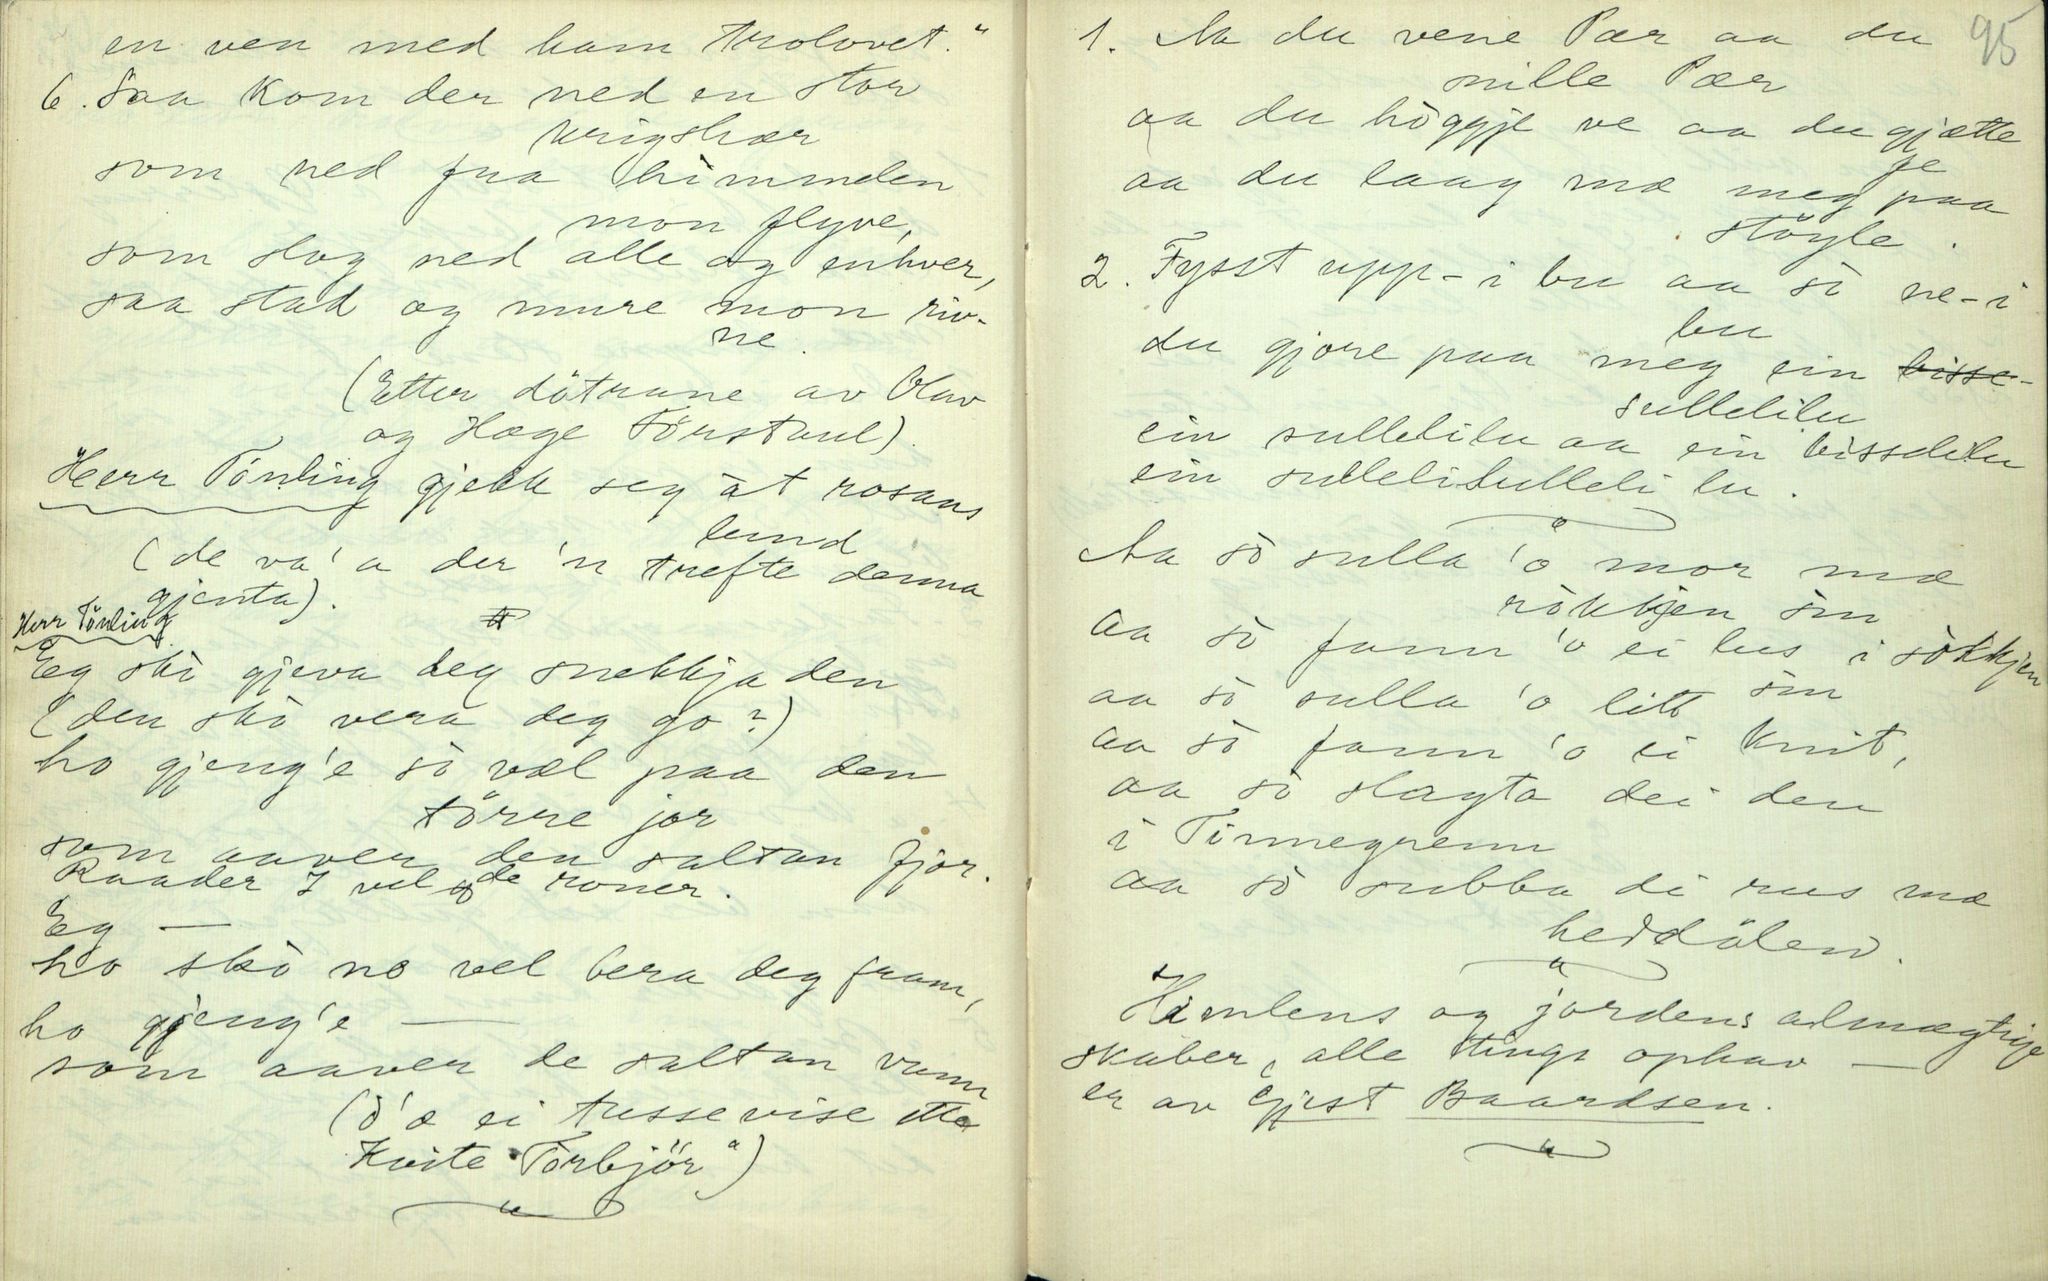 en ven med ham trolovet."
6. Saa kom der ned en stor
krigshær
som ned fraa himmelen
mon flyve,
som slog ned alle og enhver,
saa stad og mure mon riv-
ne.
(Etter dötrane av Olav
og Hæge Törstaul).
Herr Tönling gjekk seg åt rosans
lund
(de va' a der 'n trefte denna
gjenta).
Herr Tönling
Eg skò gjeva deg snekkja den
(den skò vera deg go?)
ho gjeng'e sò væl paa den
törre jor
som aaver den saltan fjor.
Raader I vel de roner.
Eg —
ho skò no vel bera deg fram,
ho gjeng'e —
som aaver de saltan vann
(d'æ ei tussevise ette
Kvite Torbjör")
95
1. Aa du vene Pær aa du
snille Pær
aa du höggje ve aa du gjætte
fe
aa du laag mæ meg paa
støyle.
2. Fysst upp-i bu aa sò ne-i
bu
du gjore paa meg ein bisse-
sullelilu
ein sullelilu aa ein bisselilu
ein sullelisulleli lu.
Aa sò sulla 'o mor mæ
rökkjen sin
aa sò fann 'o ei lus i sökkjen
sin
aa sò sulla 'o litt
aa sò fann 'o ei knit,
aa sò slagta dei den
i Tinnegrenn
aa sò subba di rus mæ
heddölen.
Himlens og jordens almægtige
skaber, alle tings ophav —
er av Gjest Baardsen.